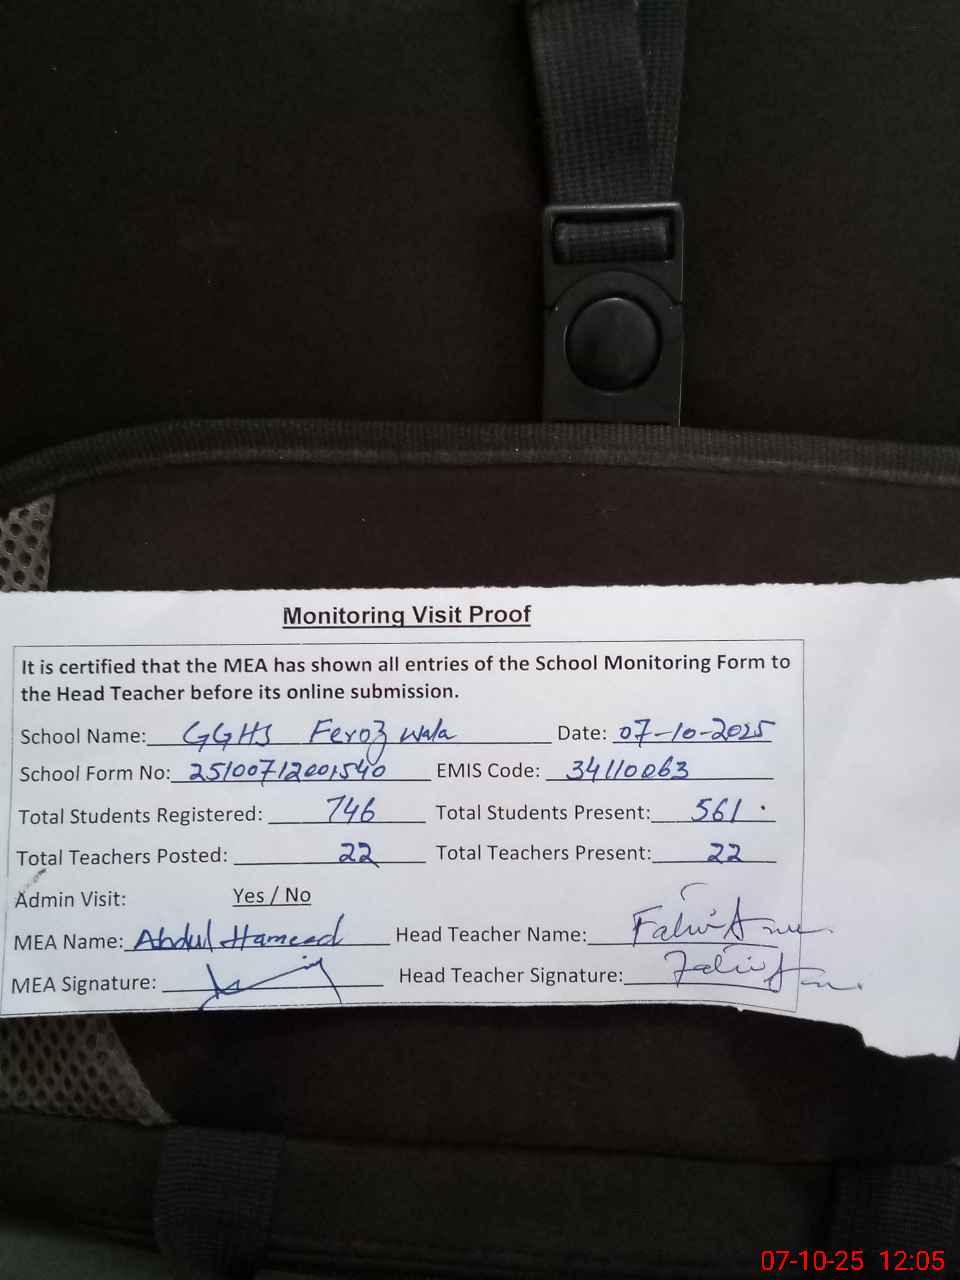 Monitoring Visit Proof
It is certified that the MEA has shown all entries of the School Monitoring Form to
the Head Teacher before its online submission.
School Name: GGHS Feroz wala Date: 07-10-2025
School Form No: EMIS Code: 34110063
Total Students Registered: 746 Total Students Present: 561
Total Teachers Posted: 22 Total Teachers Present: 22
Admin Visit: Yes / No
MEA Name: Abdul Hameed Head Teacher Name:
MEA Signature: Head Teacher Signature:
07-10-25 12:05